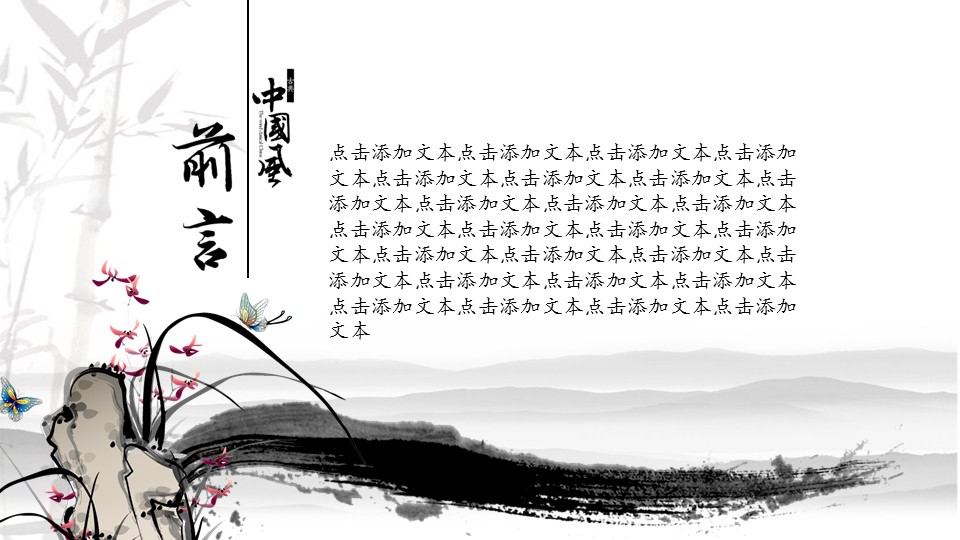 前言
中國風
古典
点击添加文本点击添加文本点击添加文本点击添加
文本点击添加文本点击添加文本点击添加文本点击
添加文本点击添加文本点击添加文本点击添加文本
点击添加文本点击添加文本点击添加文本点击添加
文本点击添加文本点击添加文本点击添加文本点击
添加文本点击添加文本点击添加文本点击添加文本
点击添加文本点击添加文本点击添加文本点击添加
文本